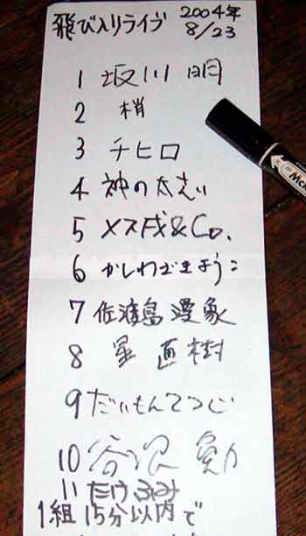 飛び入りライブ 2004年
8/23
1 坂川 明
2 梢
3 チヒロ
4 神の太志い
5 メス茂&Co.
6 かしわざきようこ
7 佐渡島 漫象
8 星 直樹
9 だいもんてつじ
10 谷沢 勲
11 たけふみ
1組15分以内で